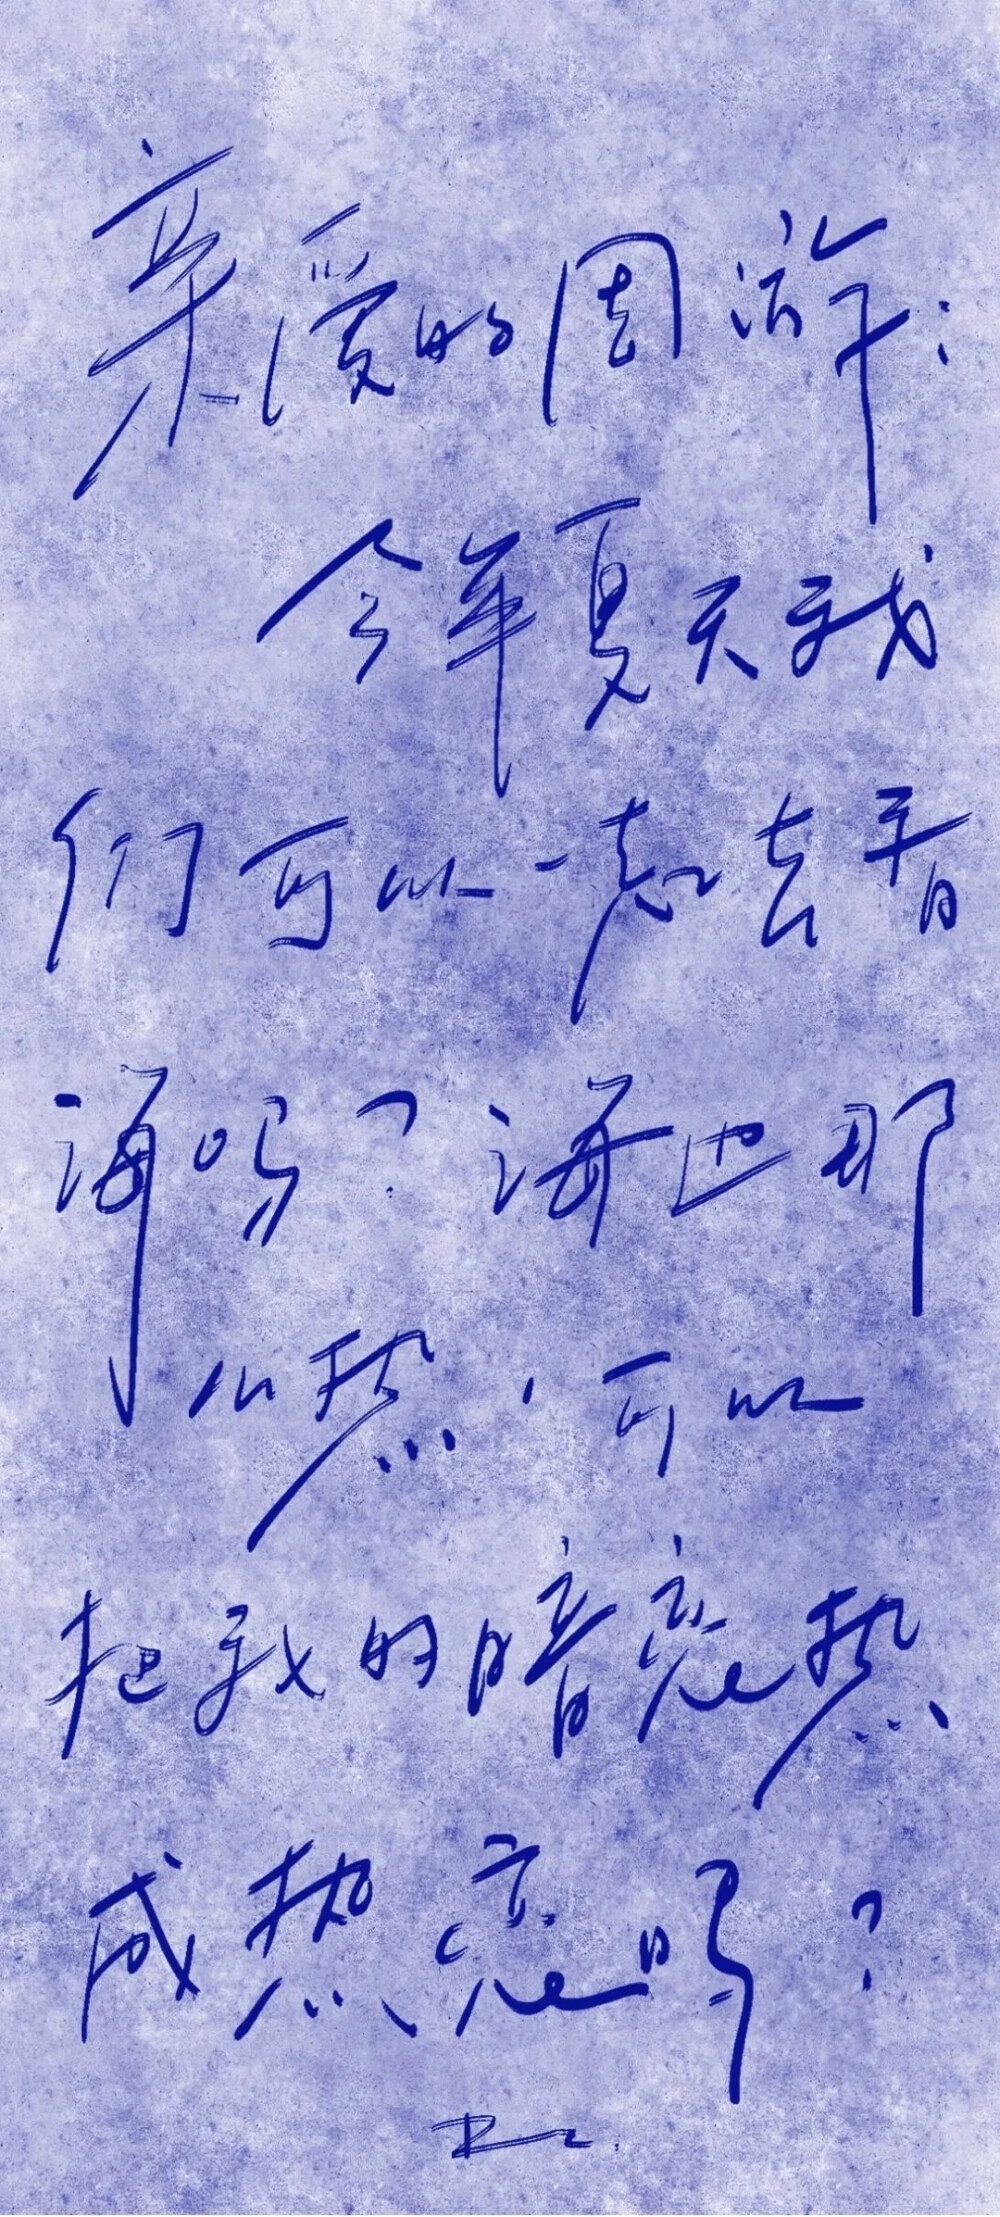 亲爱的周游：
今年夏天我
们可以一起去看
海吗？海边那
么热，可以
把我的暗恋热
成热恋吗？